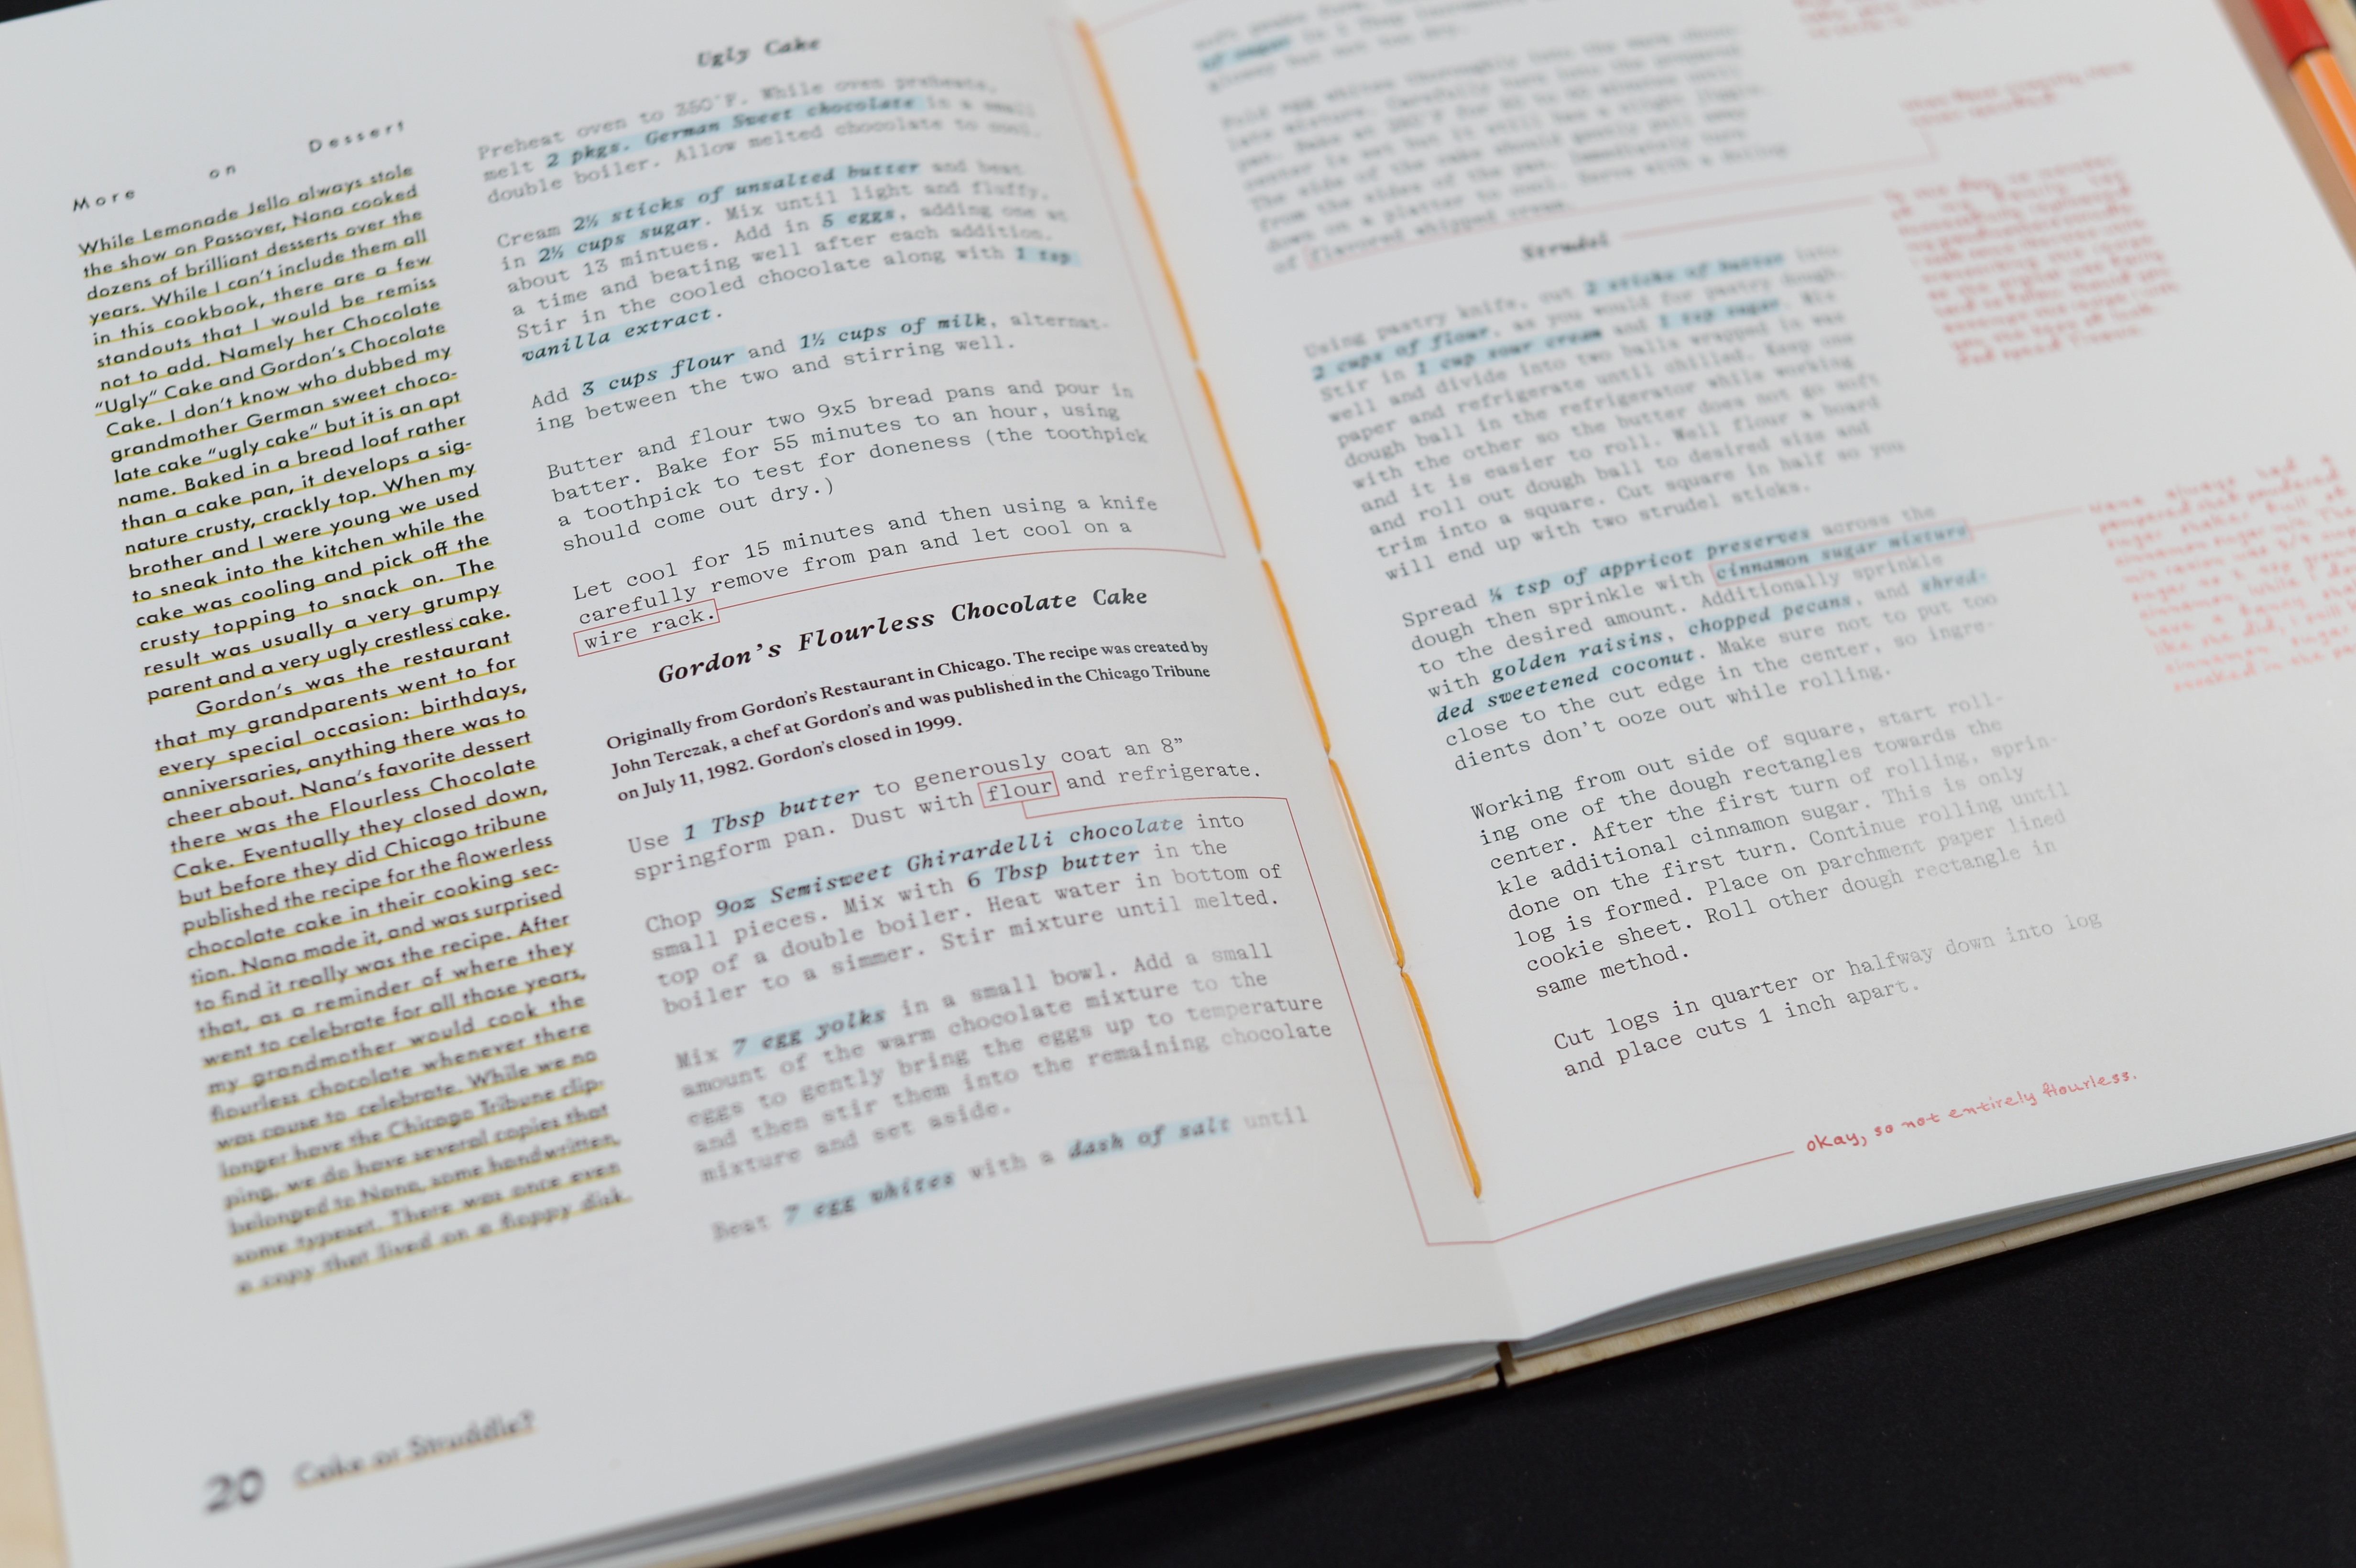 More on Dessert
While Lemonade Jello always stole
the show on Passover, Nana cooked
dozens of brilliant desserts over the
years. While I can't include them all
in this cookbook, there are a few
standouts that I would be remiss
not to add. Namely her Chocolate
"Ugly" Cake and Gordon's Chocolate
Cake. I don't know who dubbed my
grandmother German sweet choco-
late cake "ugly cake" but it is an apt
name. Baked in a bread loaf rather
than a cake pan, it develops a sig-
nature crusty, crackly top. When my
brother and I were young we used
to sneak into the kitchen while the
cake was cooling and pick off the
crusty topping to snack on. The
result was usually a very grumpy
parent and a very ugly crestless cake.
Gordon's was the restaurant
that my grandparents went to for
every special occasion: birthdays,
anniversaries, anything there was to
cheer about. Nana's favorite dessert
there was the Flourless Chocolate
Cake. Eventually they closed down,
but before they did Chicago tribune
published the recipe for the flowerless
chocolate cake in their cooking sec-
tion. Nana made it, and was surprised
to find it really was the recipe. After
that, as a reminder of where they
went to celebrate for all those years,
my grandmother would cook the
flourless chocolate whenever there
was cause to celebrate. While we no
longer have the Chicago Tribune clip-
ping, we do have several copies that
belonged to Nana, some handwritten,
some typeset. There was once even
a copy that lived on a floppy disk.
20 Cake or Struddle?
Ugly Cake
Preheat oven to 350°F. While oven preheats,
melt 2 pkgs. German Sweet chocolate in a small
double boiler. Allow melted chocolate to cool.
Cream 2½ sticks of unsalted butter and beat
in 2½ cups sugar. Mix until light and fluffy,
about 13 mintues. Add in 5 eggs, adding one at
a time and beating well after each addition.
Stir in the cooled chocolate along with 1 tsp
vanilla extract.
Add 3 cups flour and 1½ cups of milk, alternat-
ing between the two and stirring well.
Butter and flour two 9x5 bread pans and pour in
batter. Bake for 55 minutes to an hour, using
a toothpick to test for doneness (the toothpick
should come out dry.)
Let cool for 15 minutes and then using a knife
carefully remove from pan and let cool on a
wire rack.
Gordon's Flourless Chocolate Cake
Originally from Gordon's Restaurant in Chicago. The recipe was created by
John Terczak, a chef at Gordon's and was published in the Chicago Tribune
on July 11, 1982. Gordon's closed in 1999.
Use 1 Tbsp butter to generously coat an 8"
springform pan. Dust with flour and refrigerate.
Chop 9oz Semisweet Ghirardelli chocolate into
small pieces. Mix with 6 Tbsp butter in the
top of a double boiler. Heat water in bottom of
boiler to a simmer. Stir mixture until melted.
Mix 7 egg yolks in a small bowl. Add a small
amount of the warm chocolate mixture to the
eggs to gently bring the eggs up to temperature
and then stir them into the remaining chocolate
mixture and set aside.
Beat 7 egg whites with a dash of salt until
of sugar in
glossy but not too dry.
Fold egg whites thoroughly into the warm choco-
late mixture. Carefully turn into the prepared
pan. Bake at
center is set but it still has a slight jiggle.
The side of the cake should gently pull away
from the sides of the pan. Immediately turn
down on a platter to cool. Serve with a
of flavored whipped cream.
Strudel
Using pastry knife, cut 2 sticks of butter into
2 cups of flour, as you would for pastry dough.
Stir in 1 cup sour cream and 1 tsp sugar. Mix
well and divide into two balls wrapped in wax
paper and refrigerate until chilled. Keep one
dough ball in the refrigerator while working
with the other so the butter does not go soft
and it is easier to roll. Well flour a board
and roll out dough ball to desired size and
trim into a square. Cut square in half so you
will end up with two strudel sticks.
Spread ¼ tsp of appricot preserves across the
dough then sprinkle with cinnamon sugar mixture
to the desired amount. Additionally sprinkle
with golden raisins, chopped pecans, and shred-
ded sweetened coconut. Make sure not to put too
close to the cut edge in the center, so ingre-
dients don't ooze out while rolling.
Working from out side of square, start roll-
ing one of the dough rectangles towards the
center. After the first turn of rolling, sprin-
kle additional cinnamon sugar. This is only
done on the first turn. Continue rolling until
log is formed. Place on parchment paper lined
cookie sheet. Roll other dough rectangle in
same method.
Cut logs in quarter or halfway down into log
and place cuts 1 inch apart.
okay, so not entirely flourless.